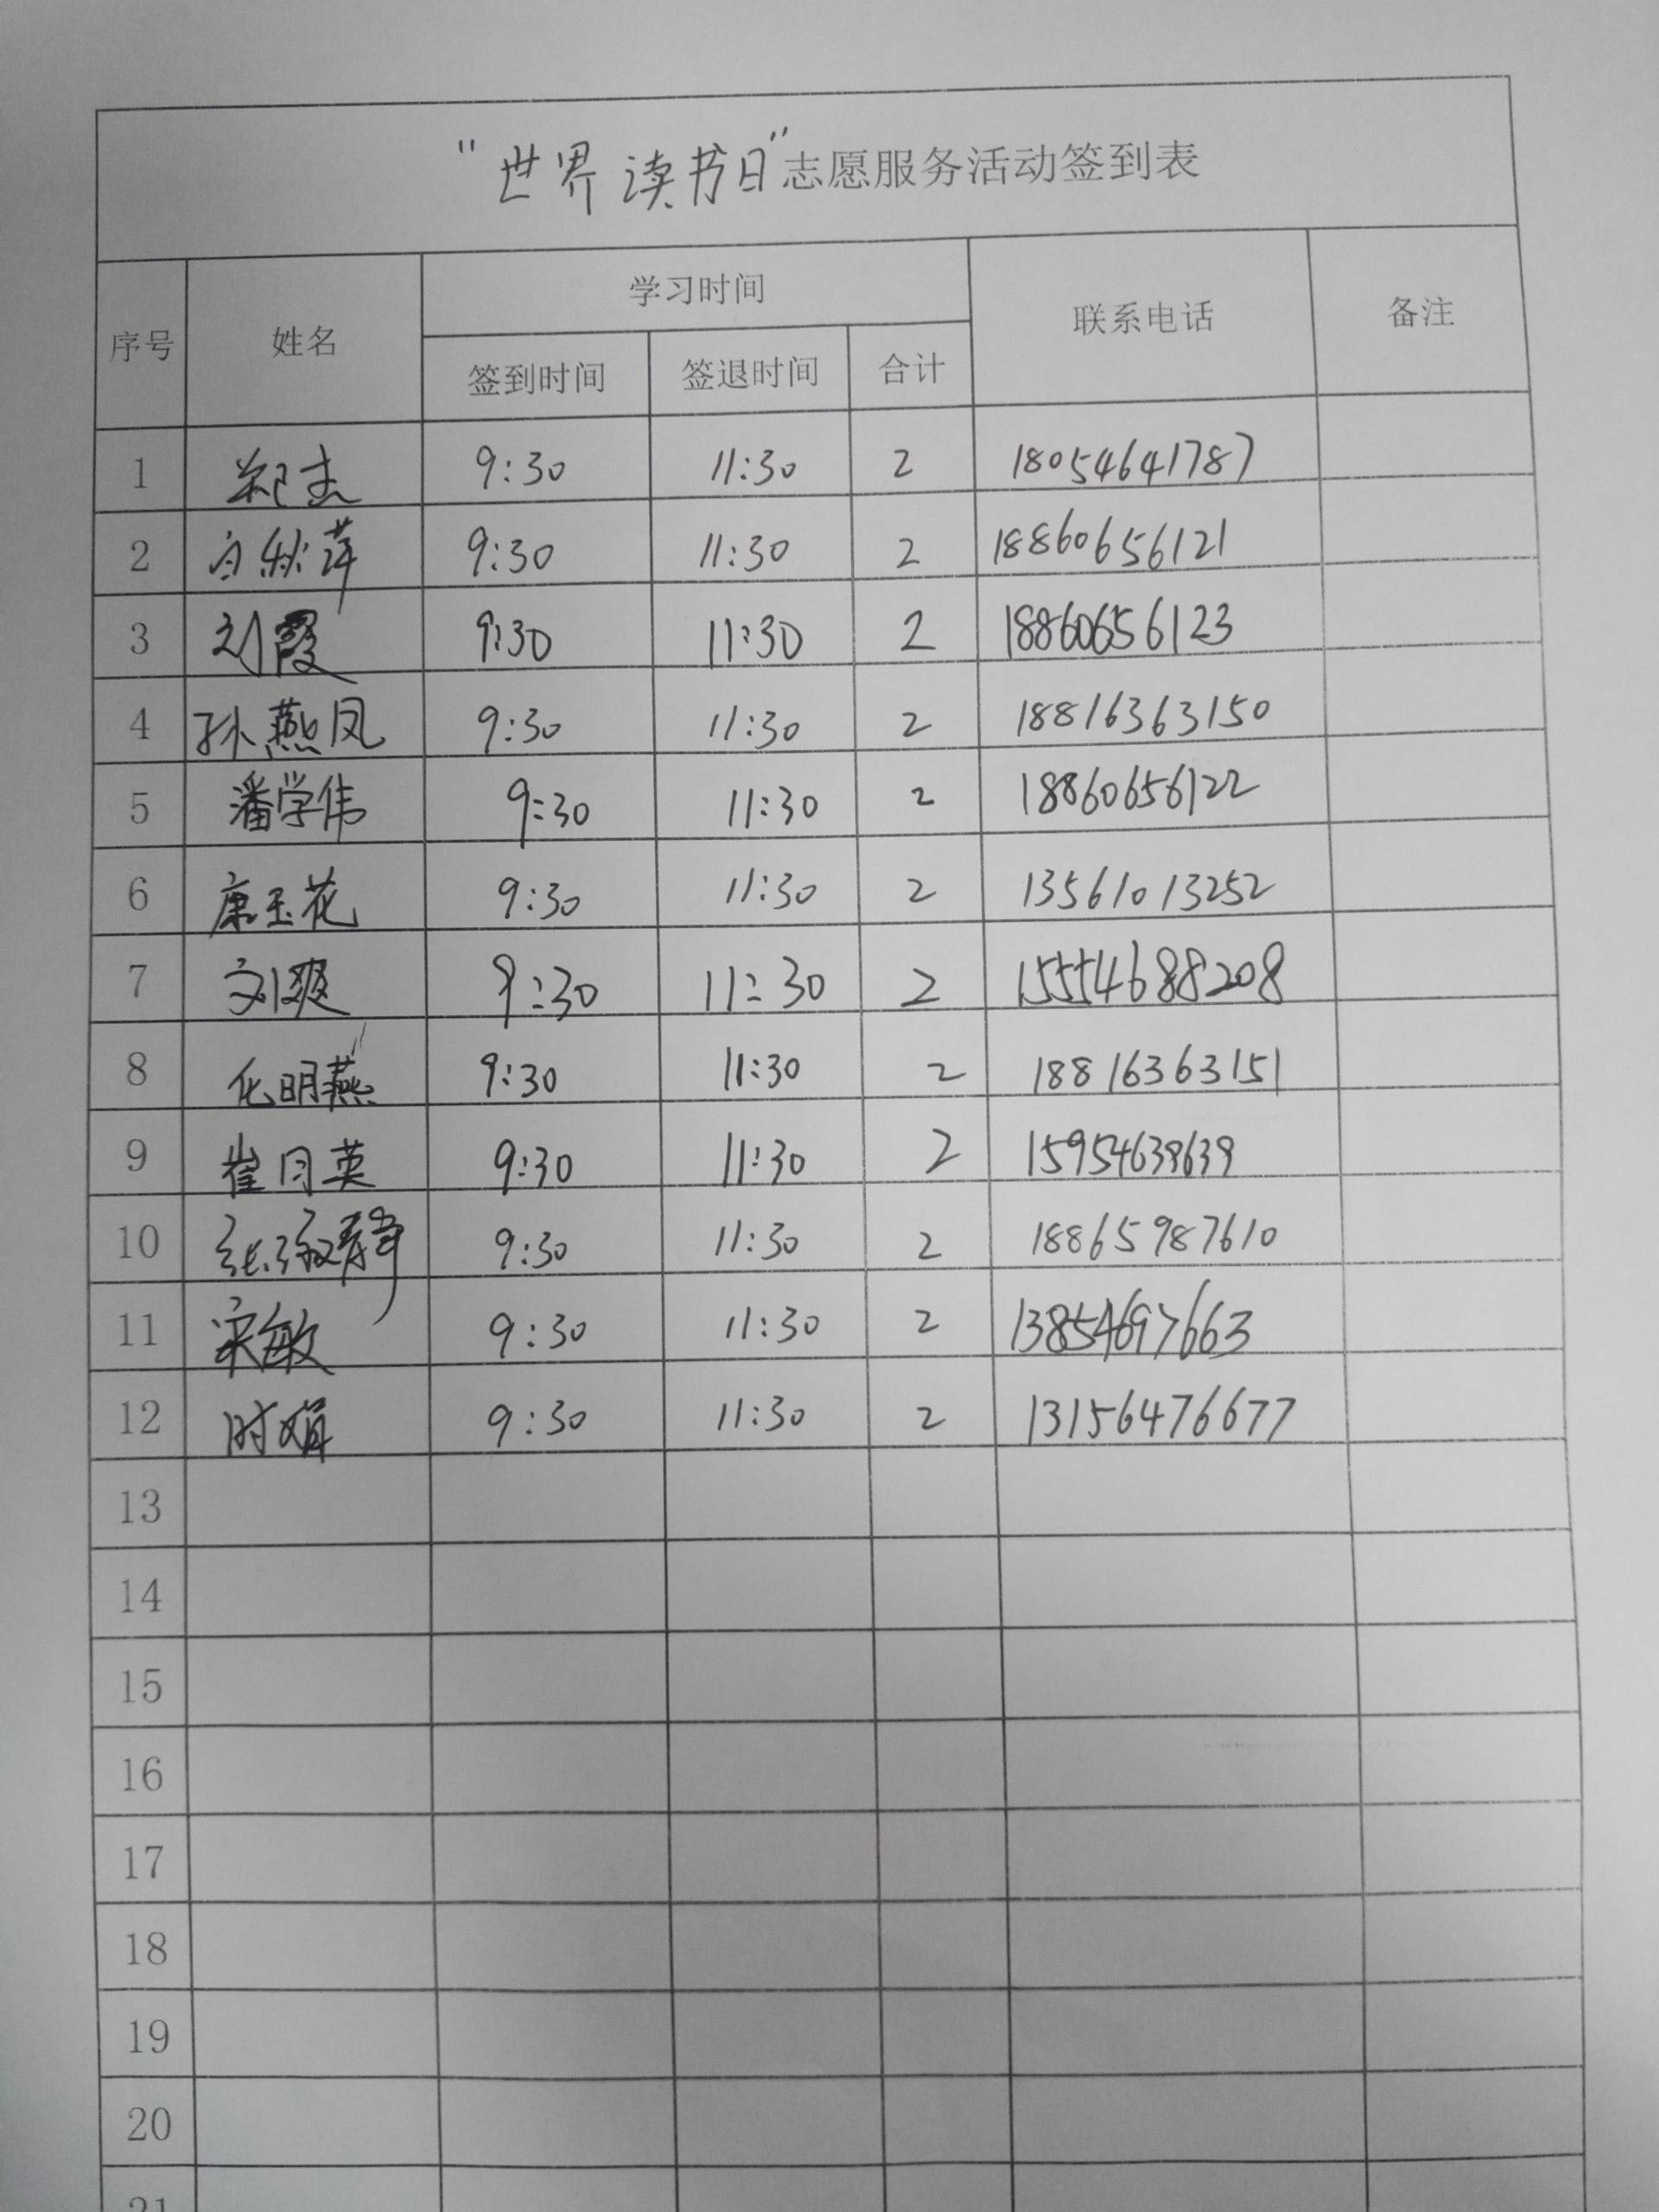 “世界读书日”志愿服务活动签到表
序号 姓名 学习时间 联系电话 备注
签到时间 签退时间 合计
1 郑杰 9:30 11:30 2 18054641787
2 秋萍 9:30 11:30 2 18860656121
3 刘霞 9:30 11:30 2 18860656123
4 孙燕凤 9:30 11:30 2 18816363150
5 潘学伟 9:30 11:30 2 18860656122
6 康玉花 9:30 11:30 2 13561013252
7 刘爽 9:30 11:30 2 15554688208
8 化明燕 9:30 11:30 2 18816363151
9 崔月英 9:30 11:30 2 15954639639
10 张淑静 9:30 11:30 2 18865987610
11 宋敏 9:30 11:30 2 13854697663
12 时娟 9:30 11:30 2 13156476677
13
14
15
16
17
18
19
20
21